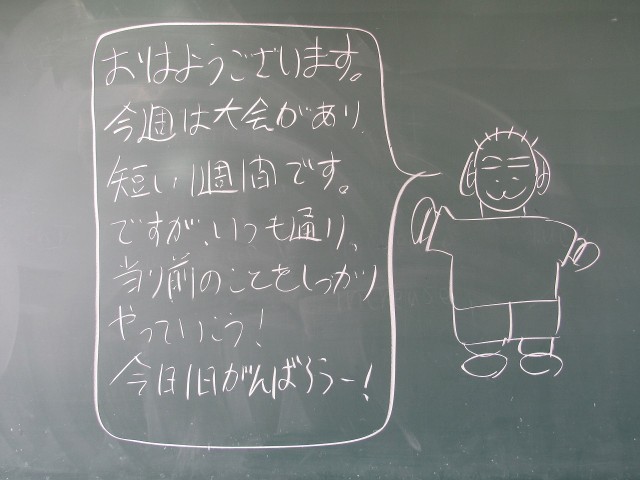 おはようございます。
今週は大会があり、
短い1週間です。
ですが、いつも通り、
当り前のことをしっかり
やっていこう!
今日1日がんばろうー!